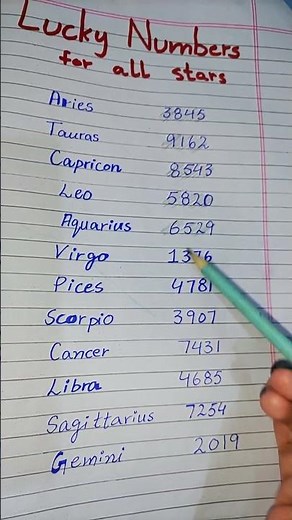 Lucky Numbers
for all stars
Aries 3845
Tauras 9162
Capricon 8543
Leo 5820
Aquarius 6529
Virgo 1376
Pices 4781
Scorpio 3907
Cancer 7431
Libra 4685
Sagittarius 7254
Gemini 2019